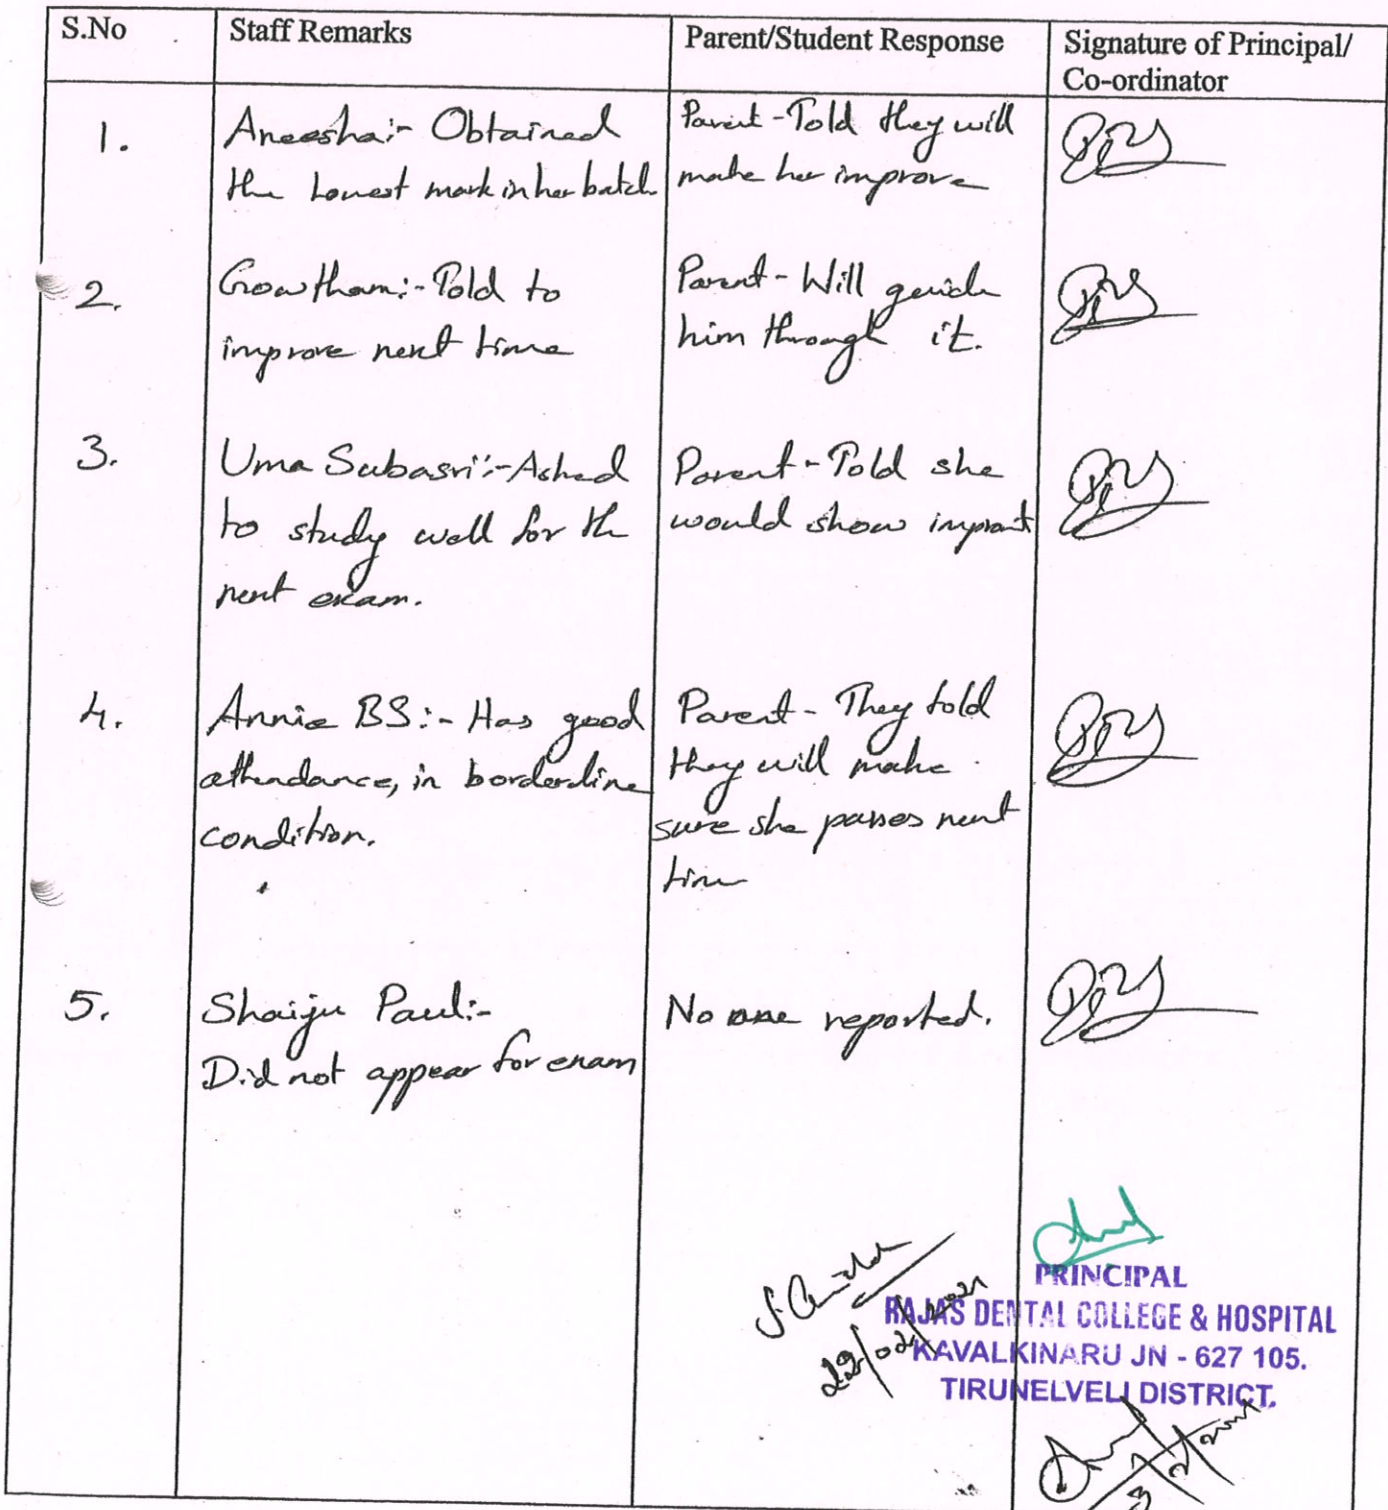 S.No
Staff Remarks
Parent/Student Response
Signature of Principal/
Co-ordinator
1.
Aneesha:- Obtained
the Lowest mark in her batch
Parent - Told they will
make her improve
2.
Gowtham:- Told to
improve next time
Parent - Will guide
him through it.
3.
Uma Subasri:- Asked
to study well for the
next exam.
Parent - Told she
would show
4.
Annie BS:- Has good
attendance, in borderline
condition.
Parent - They told
they will make
sure she passes next
time
5.
Shaiju Paul:-
Did not appear for exam
No one reported.
22/02/2021
PRINCIPAL
RAJAS DENTAL COLLEGE & HOSPITAL
KAVALKINARU JN - 627 105.
TIRUNELVELI DISTRICT.